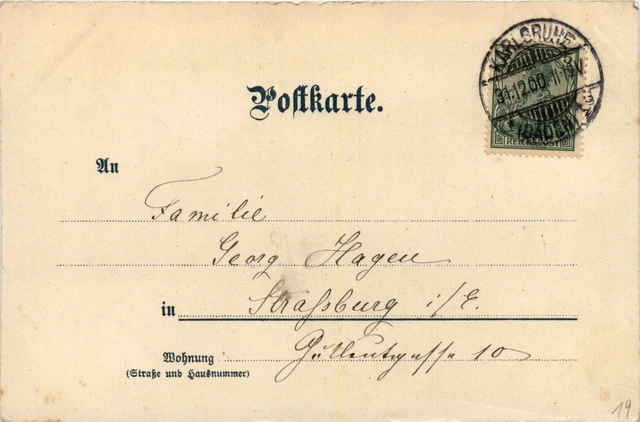 Postkarte.
KARLSRUHE
31.12.00. 11-12V.
(BADEN)
REICHSPOST
An
Familie
Georg Hagen
in Straßburg i/E.
Wohnung 10
(Straße und Hausnummer)
19